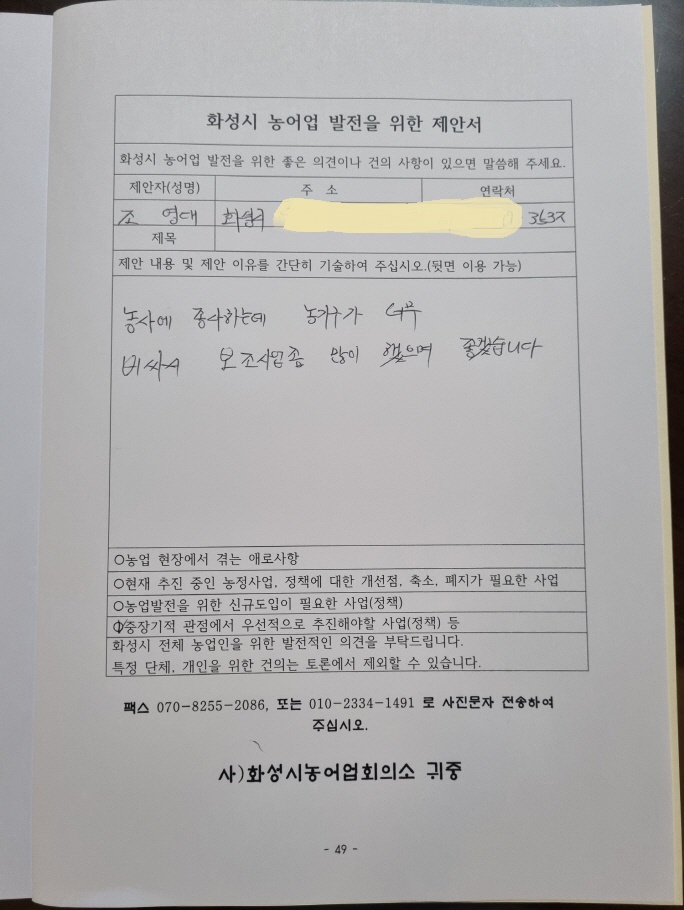 화성시 농어업 발전을 위한 제안서
화성시 농어업 발전을 위한 좋은 의견이나 건의 사항이 있으면 말씀해 주세요.
제안자(성명) 주 소 연락처
조 영대 화성시
제목
제안 내용 및 제안 이유를 간단히 기술하여 주십시오.(뒷면 이용 가능)
농사에 종사하는데 농기구가 너무
비싸서 보조사업좀 많이 했으며 좋겠습니다
○농업 현장에서 겪는 애로사항
○현재 추진 중인 농정사업, 정책에 대한 개선점, 축소, 폐지가 필요한 사업
○농업발전을 위한 신규도입이 필요한 사업(정책)
○중장기적 관점에서 우선적으로 추진해야할 사업(정책) 등
화성시 전체 농업인을 위한 발전적인 의견을 부탁드립니다.
특정 단체, 개인을 위한 건의는 토론에서 제외할 수 있습니다.
팩스 070-8255-2086, 또는 010-2334-1491 로 사진문자 전송하여
주십시오.
사)화성시농어업회의소 귀중
- 49 -